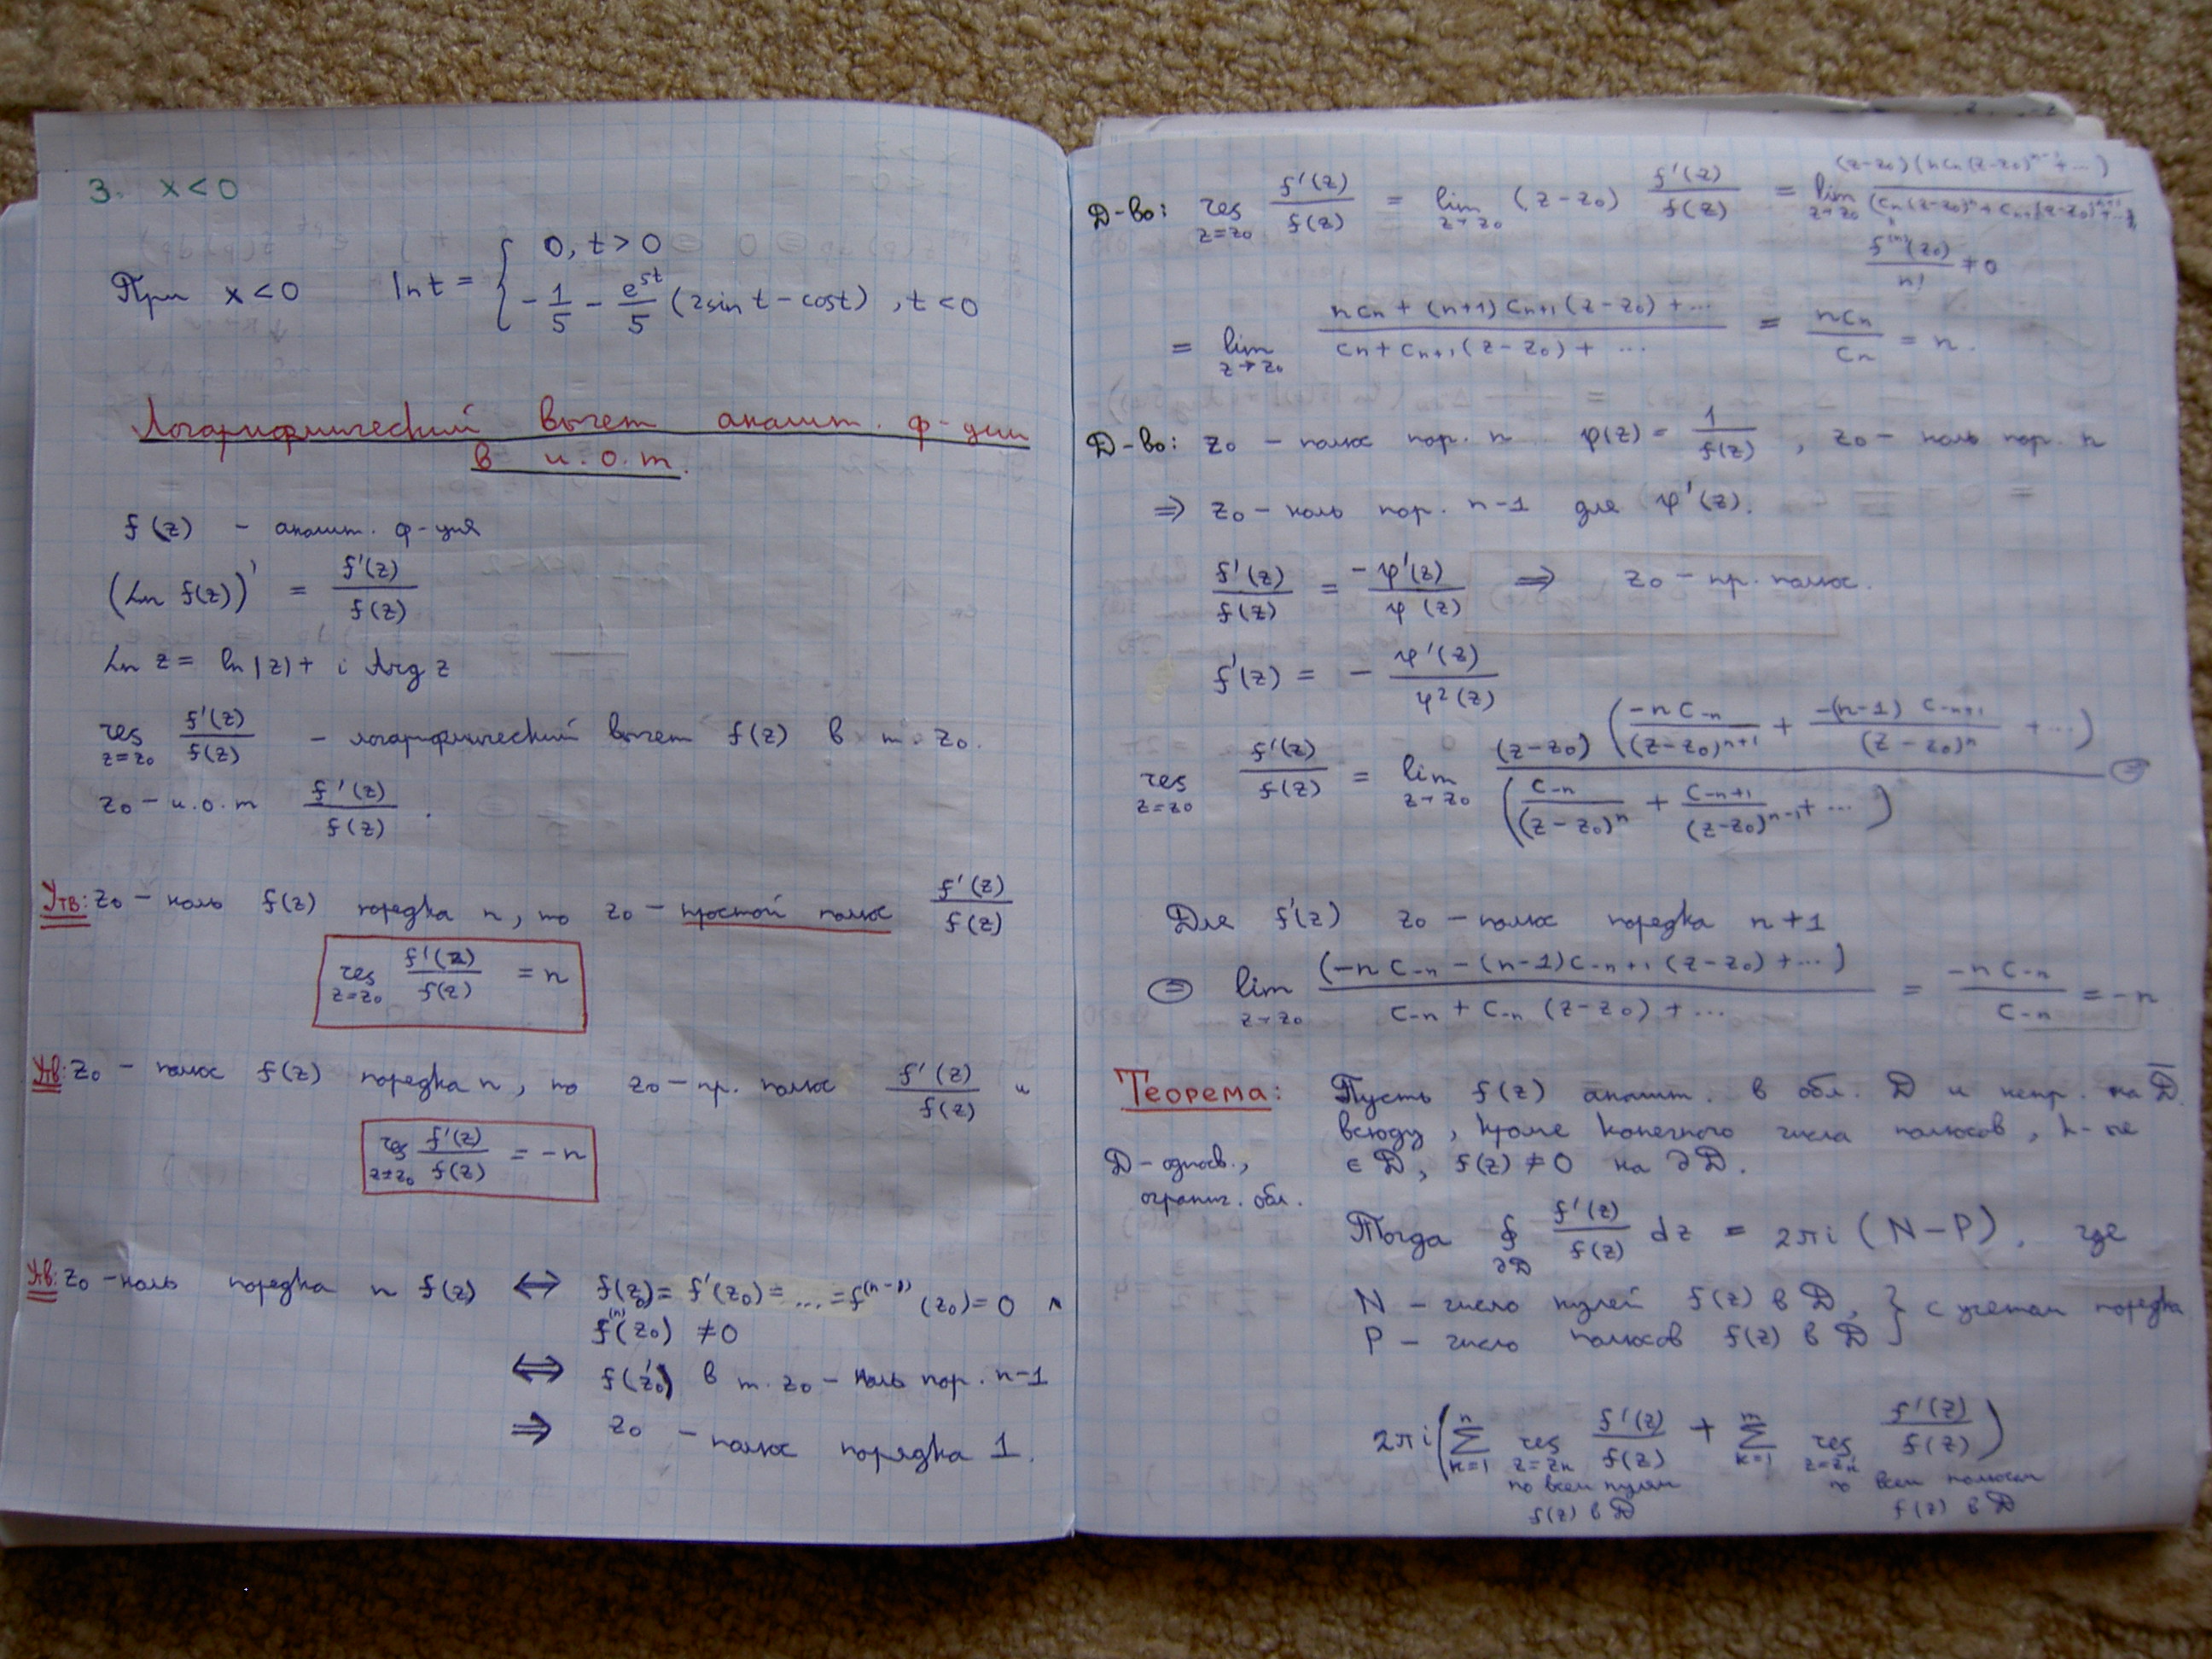 3. x<0
При x<0 ln t = { 0, t>0
- 1/5 - e^{5t}/5 (2sin t - cos t), t<0
Логарифмический вычет аналит. ф-ции
в и.о.т.
f(z) - аналит. ф-ция
(Ln f(z))' = f'(z)/f(z)
Ln z = ln|z| + i Arg z
res_{z=z₀} f'(z)/f(z) - логарифмический вычет f(z) в т. z₀.
z₀ - и.о.т f'(z)/f(z).
Утв: z₀ - ноль f(z) порядка n, то z₀ - простой полюс f'(z)/f(z)
res_{z=z₀} f'(z)/f(z) = n
Утв: z₀ - полюс f(z) порядка n, то z₀ - пр. полюс f'(z)/f(z) и
res_{z=z₀} f'(z)/f(z) = -n
Утв: z₀ - ноль порядка n f(z) ⟺ f(z₀) = f'(z₀) = ... = f^{(n-1)}(z₀) = 0 ∧
f^{(n)}(z₀) ≠ 0
⟺ f'(z₀) в т. z₀ - ноль пор. n-1
⇒ z₀ - полюс порядка 1.
Д-во: res_{z=z₀} f'(z)/f(z) = lim_{z→z₀} (z-z₀) f'(z)/f(z) = lim_{z→z₀} (z-z₀)(n cₙ(z-z₀)^{n-1} + ...)/(cₙ(z-z₀)^n + c_{n+1}(z-z₀)^{n+1} + ...)
f^{(n)}(z₀)/n! ≠ 0
= lim_{z→z₀} (n cₙ + (n+1) c_{n+1}(z-z₀) + ...)/(cₙ + c_{n+1}(z-z₀) + ...) = n cₙ/cₙ = n.
Д-во: z₀ - полюс пор. n φ(z) = 1/f(z), z₀ - ноль пор. n
⇒ z₀ - ноль пор. n-1 для φ'(z).
f'(z)/f(z) = -φ'(z)/φ(z) ⇒ z₀ - пр. полюс.
f'(z) = - φ'(z)/φ²(z)
res_{z=z₀} f'(z)/f(z) = lim_{z→z₀} (z-z₀)(-n c_{-n}/(z-z₀)^{n+1} + -(n-1) c_{-n+1}/(z-z₀)^n + ...)/(c_{-n}/(z-z₀)^n + c_{-n+1}/(z-z₀)^{n-1} + ...) ⊜
Для f'(z) z₀ - полюс порядка n+1
⊜ lim_{z→z₀} (-n c_{-n} - (n-1) c_{-n+1}(z-z₀) + ...)/(c_{-n} + c_{-n}(z-z₀) + ...) = -n c_{-n}/c_{-n} = -n
Теорема: Пусть f(z) аналит. в обл. D и непр. на D̄
всюду, кроме конечного числа полюсов, к-ые
D - односв., ∈ D, f(z) ≠ 0 на ∂D.
огранич. обл.
Тогда ∮_{∂D} f'(z)/f(z) dz = 2πi (N-P), где
N - число нулей f(z) в D, } с учетом порядка
P - число полюсов f(z) в D
2πi (∑_{k=1}^{n} res_{z=zₖ} f'(z)/f(z) + ∑_{k=1}^{m} res_{z=zₖ'} f'(z)/f(z))
по всем нулям по всем полюсам
f(z) в D f(z) в D